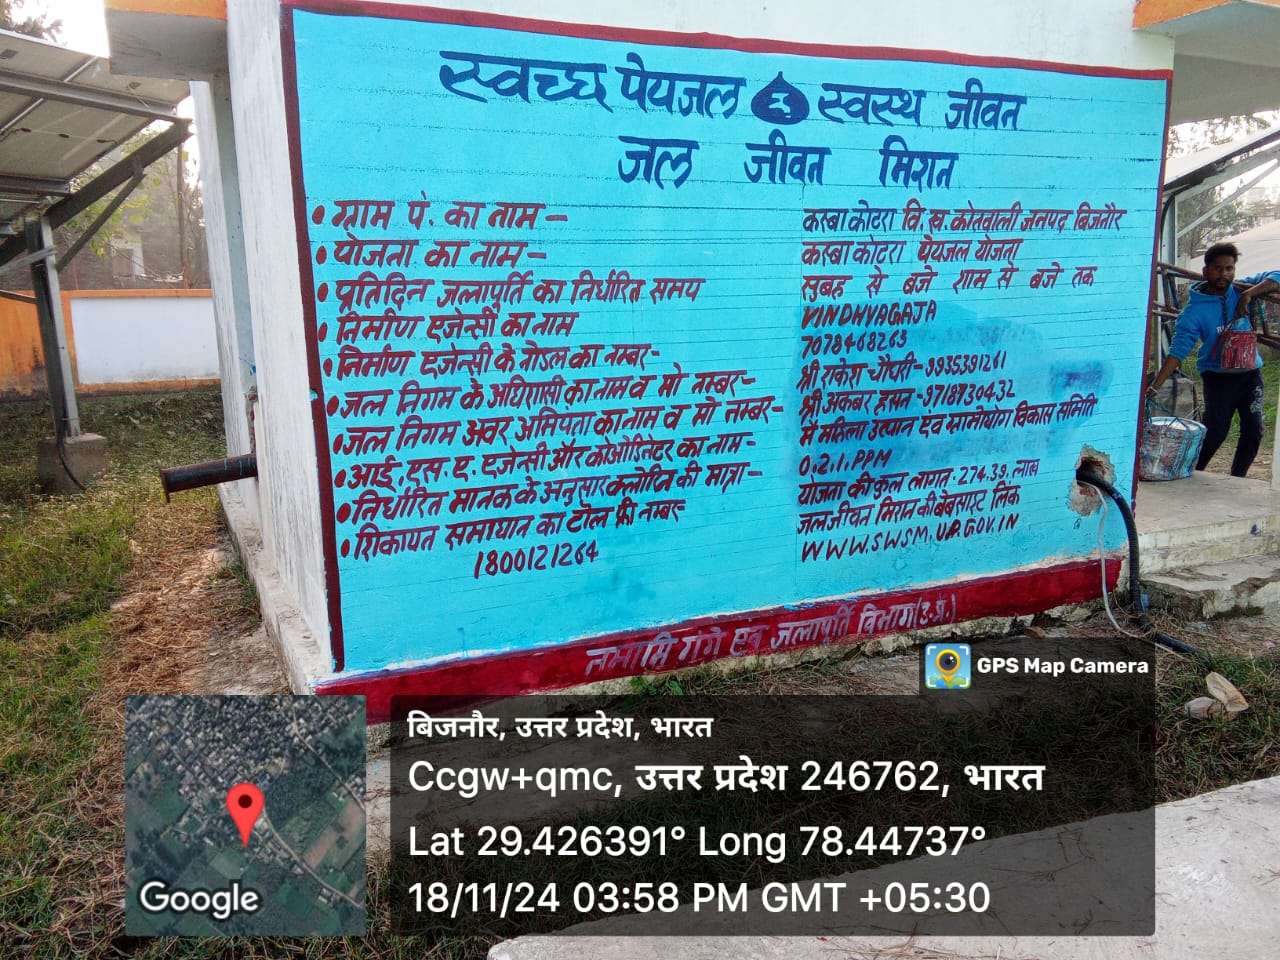 स्वच्छ पेयजल स्वस्थ जीवन
जल जीवन मिशन
• ग्राम पं. का नाम – कस्बा कोटरा वि. ख. कोतवाली जनपद बिजनौर
• योजना का नाम – कस्बा कोटरा पेयजल योजना
• प्रतिदिन जलापूर्ति का निर्धारित समय सुबह से बजे शाम से बजे तक
• निर्माण एजेन्सी का नाम VINDHYAGAJA
• निर्माण एजेन्सी के नोडल का नम्बर- 7078468263
• जल निगम के अधिशासी का नाम व मो नम्बर- श्री राकेश चौधरी-9935391261
• जल निगम अवर अभियंता का नाम व मो नम्बर- श्री अकबर हसन-9718930432
• आई. एस. ए. एजेन्सी और कोओडिनेटर का नाम- मै महिला उत्थान एंव ग्रामोद्योग विकास समिति
• निर्धारित मानक के अनुसार क्लोरिन की मात्रा- 0.2.1.PPM
• शिकायत समाधान का टोल फ्री नम्बर- योजना की कुल लागत-274.39. लाख
1800121264 जल जीवन मिशन की बेबसाइट लिंक
WWW.SWSM.UP.GOV.IN
नमामि गंगे एवं जलापूर्ति विभाग (उ.प्र.)
GPS Map Camera
बिजनौर, उत्तर प्रदेश, भारत
Ccgw+qmc, उत्तर प्रदेश 246762, भारत
Lat 29.426391° Long 78.44737°
18/11/24 03:58 PM GMT +05:30
Google